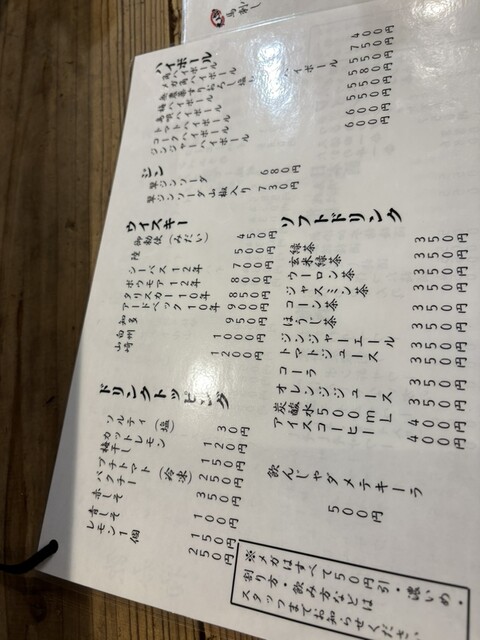 馬刺し
ハイボール
角ハイボール
メガ角ハイボール
トマトハイボール
コークハイボール
ジンジャーハイボール
ジン
翠ジンソーダ 680円
翠ジンソーダ山椒入り 730円
ウイスキー
御勅使(みだい) 450円
陸 500円
シーバス12年 700円
ボウモア12年 800円
タリスカー10年 850円
アードベック10年 900円
知多 950円
白州 1000円
山崎 1200円
ドリンクトッピング
ソルティ(塩) 30円
カットレモン 120円
梅干し 150円
プチトマト(冷凍) 250円
パクチー 350円
赤しそ 100円
青しそ 150円
レモン1個 250円
ソフトドリンク
緑茶 350円
玄米緑茶 350円
ウーロン茶 350円
ジャスミン茶 350円
コーン茶 350円
ほうじ茶 350円
ジンジャーエール 350円
トマトジュース 350円
コーラ 350円
オレンジジュース 350円
炭酸水500mL 400円
アイスコーヒー 400円
飲んじゃダメテキーラ
500円
※メガはすべて50円引・濃いめ・
割り方・飲み方などは
スタッフまでお知らせください